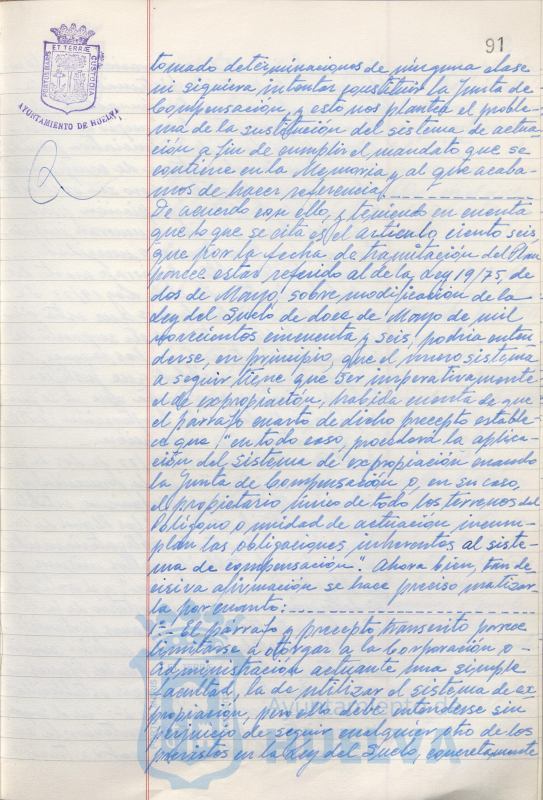 91
PORTUS MARIS ET TERRAE CUSTODIA
AYUNTAMIENTO DE HUELVA
tomado determinaciones de ninguna clase
ni siquiera intentar constituir la Junta de
Compensación, y esto nos plantea el proble-
ma de la sustitución del sistema de actua-
ción a fin de cumplir el mandato que se
contiene en la Memoria y al que acaba-
mos de hacer referencia.
De acuerdo con ello, y teniendo en cuenta
que lo que se cita es el artículo ciento seis,
que por la fecha de tramitación del Plan
parece estar referido al de la Ley 19/75, de
dos de Mayo, sobre modificación de la
Ley del Suelo de doce de Mayo de mil
novecientos cincuenta y seis, podría enten
derse, en principio, que el nuevo sistema
a seguir tiene que ser imperativamente
el de expropiación, habida cuenta de que
el párrafo cuarto de dicho precepto estable-
ce que: "en todo caso, procederá la aplica-
ción del sistema de expropiación cuando
la Junta de Compensación o, en su caso,
el propietario único de todo los terrenos del
Polígono o unidad de actuacion incum-
plan las obligaciones inherentes al siste-
ma de compensación". Ahora bien, tan de
cisiva afirmación se hace preciso matizar-
la por cuanto:
1º- El párrafo y precepto transcrito parece
limitarse a otorgar a la Corporación o
Administración actuante una simple
facultad, la de utilizar el sistema de ex-
propiación, pero ello debe entenderse sin
perjuicio de seguir cualquier otro de los
previstos en la Ley del Suelo, concretamente
Ayuntamiento
HUELVA